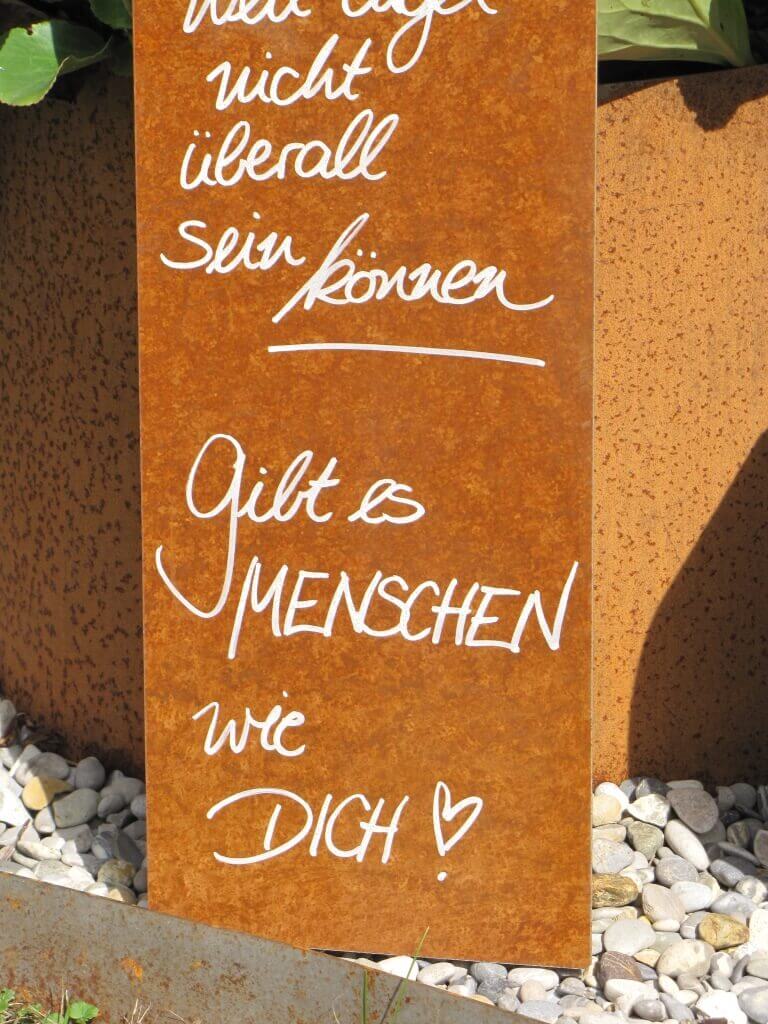 weil Engel
nicht
überall
sein können
Gibt es
MENSCHEN
wie
DICH!